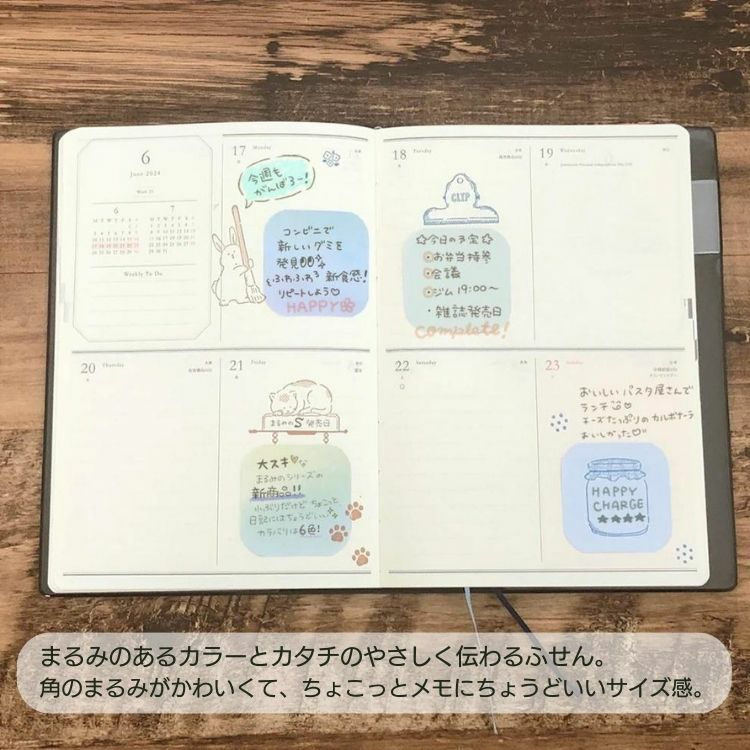 6
June 2024
Week 25
6
7
Weekly To Do
17
Monday
今週も
がんばろー!
コンビニで
新しいグミを
発見
ふわふわ 新食感!
リピートしよう
HAPPY
18
Tuesday
CLIP
☆今日の予定☆
お弁当持参
会議
ジム 19:00〜
・雑誌発売日
Complate!
19
Wednesday
20
Thursday
21
Friday
まるみのS 発売日
大スキ♡な
まるみのシリーズの
新商品!!
小ぶりだけど ちょこっと
日記にはちょうどいい
カラバリは6色!
22
Saturday
23
Sunday
おいしいパスタ屋さんで
ランチ
チーズたっぷりのカルボナーラ
おいしかった♡
HAPPY
CHARGE
★★★★
まるみのあるカラーとカタチのやさしく伝わるふせん。
角のまるみがかわいくて、ちょこっとメモにちょうどいいサイズ感。